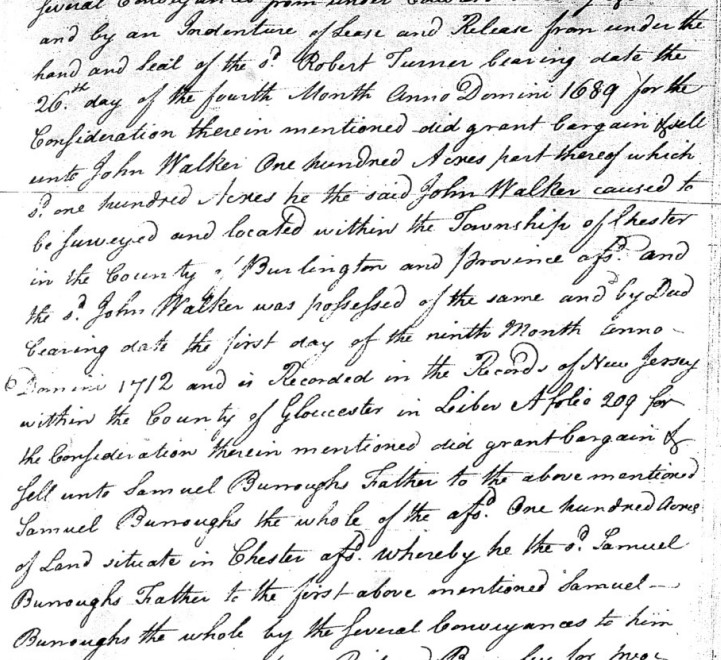 several Conveyances from under
and by an Indenture of Lease and Release from under the
hand and Seal of the sd. Robert Turner bearing date the
26.th day of the fourth Month Anno Domini 1689 for the
Consideration therein mentioned did grant bargain & sell
unto John Walker One hundred Acres part thereof which
sd. one hundred Acres he the said John Walker caused to
be surveyed and located within the Township of Chester
in the County of Burlington and province afsd. and
the sd. John Walker was possessed of the same and by Deed
bearing date the first day of the ninth Month anno
Domini 1712 and is Recorded in the Records of New Jersey
within the County of Gloucester in Liber A folio 209 for
the Consideration therein mentioned did grant bargain &
sell unto Samuel Burroughs Father to the above mentioned
Samuel Burroughs the whole of the afsd. One hundred Acres
of Land situate in Chester afsd. whereby he the sd. Samuel
Burroughs Father to the first above mentioned Samuel —
Burroughs the whole by the several Conveyances to him
for